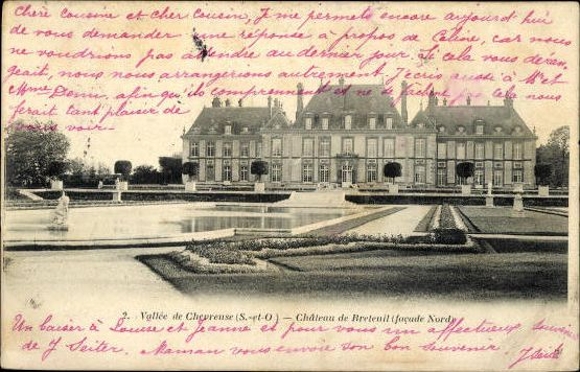 Chère cousine et cher Cousin, Je me permets encore aujourd'hui
de vous demander une réponse à propos de Céline, car nous
ne voudrions pas attendre au dernier jour. Si cela vous déran-
geait, nous nous arrangerions autrement. J'écris aussi à Mr et
Mme Denis, afin qu'ils comprennent et ne se fâchent pas, cela nous
ferait tant plaisir de
vous voir.-
2. Vallée de Chevreuse (S.-et-O) — Château de Breteuil (façade Nord)
Un baiser à Louise et Jeanne et pour vous un affectueux souvenir
de J. Seiter. Maman vous envoie son bon souvenir. J. Seiter